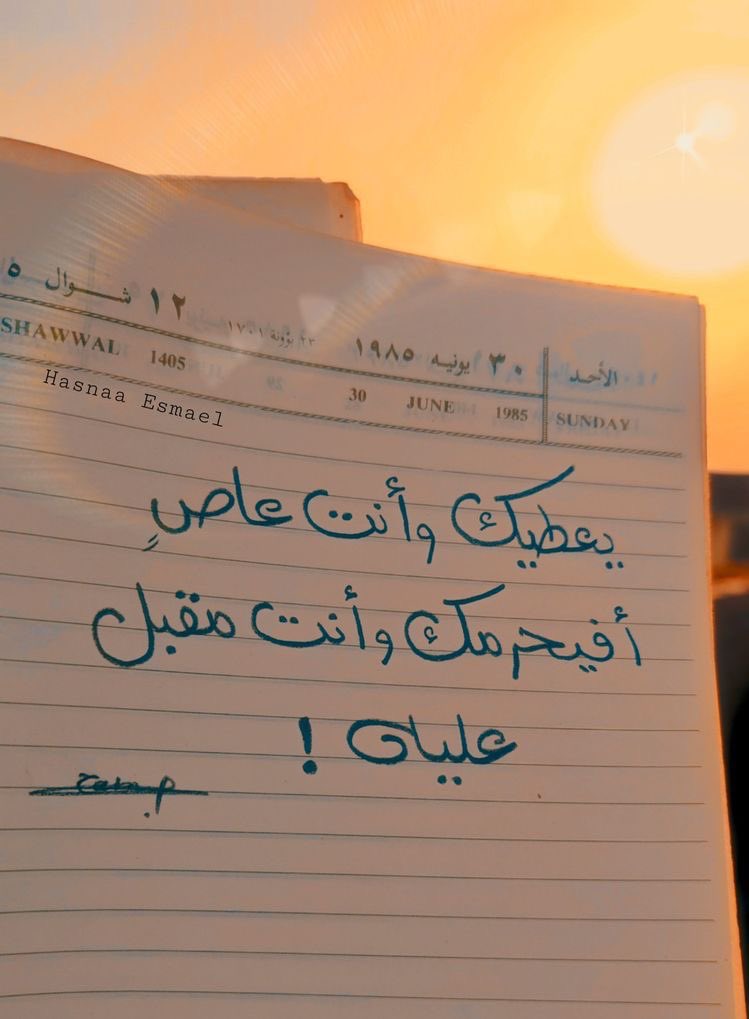 ١٢ شوال ٥
٣٠ يونيه ١٩٨٥
٢٣ بؤونة ١٧٠١
الأحد
SHAWWAL 1405
30 JUNE 1985
SUNDAY
Hasnaa Esmael
يعطيك وأنت عاصٍ
أفيحرمك وأنت مقبل
عليه !